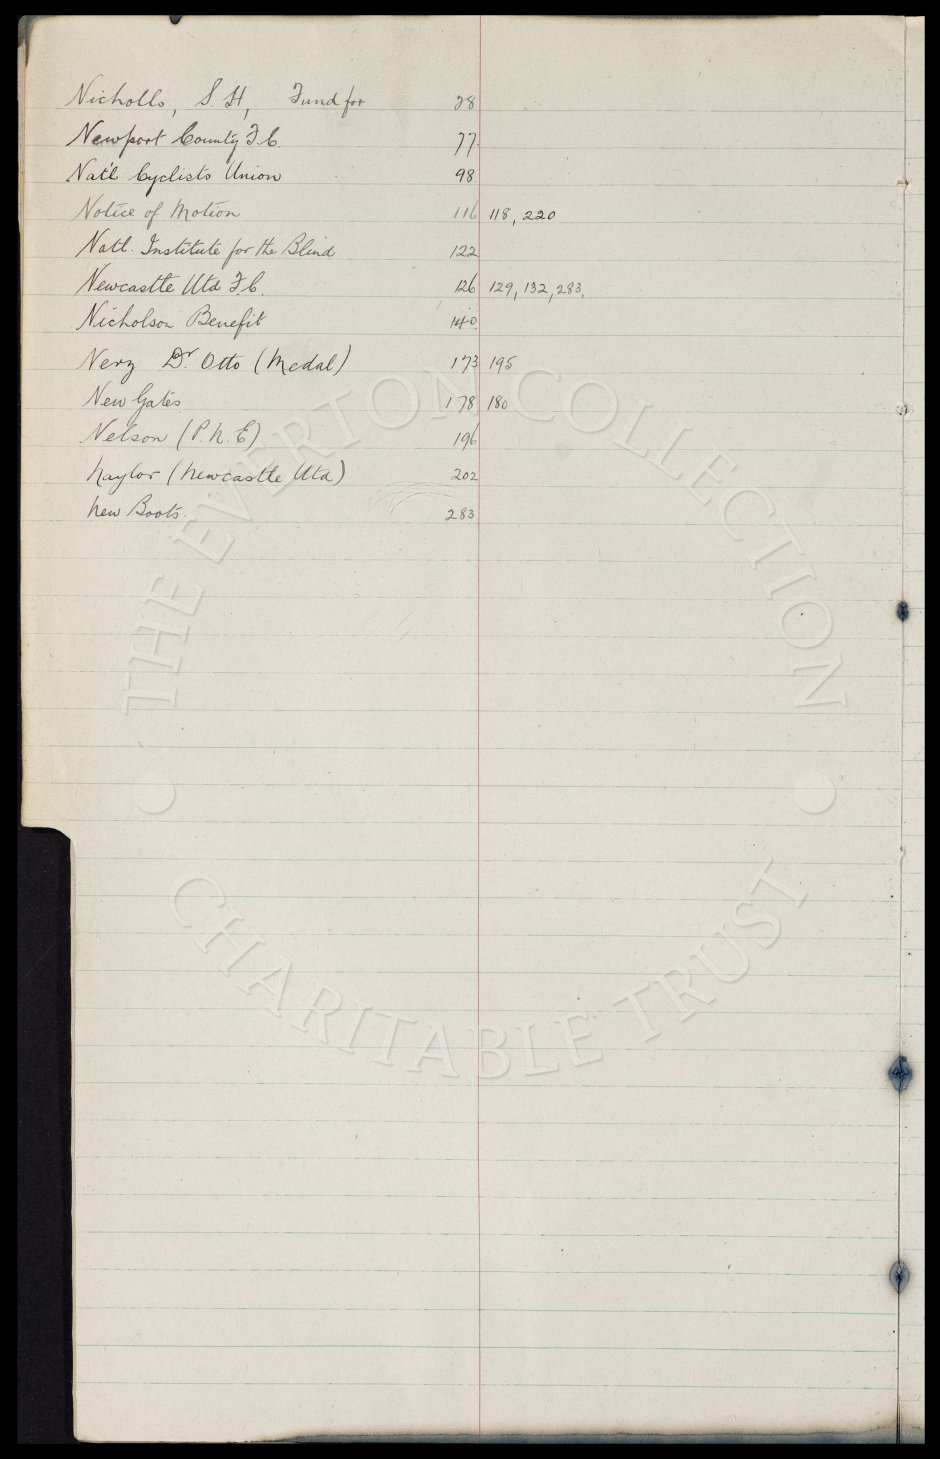 Nicholls, S. H, Fund for 28
Newport County F.C. 77
Nat'l Cyclists Union 98
Notice of Motion 116 118, 220
Natl. Institute for the Blind 122
Newcastle Utd F.C. 126 129, 132, 283.
Nicholson Benefit 140
Nerz Dr. Otto (Medal) 173 195
New Gates 178 180
Nelson (P.N.E) 196
Naylor (Newcastle Utd) 202
New Boots. 283
THE EVERTON COLLECTION
CHARITABLE TRUST